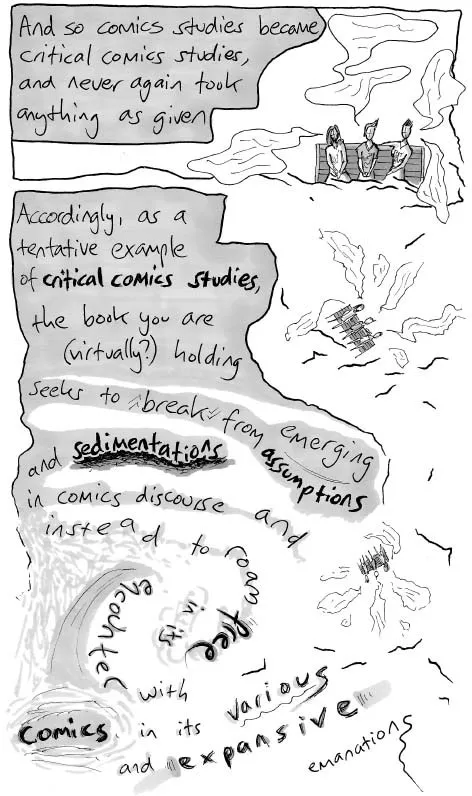 And so comics studies became
critical comics studies,
and never again took
anything as given
Accordingly, as a
tentative example
of critical comics studies,
the book you are
(virtually?) holding
seeks to break from emerging
assumptions
and sedimentations
in comics discourse and
instead to
roam free
in its
encounter
with
comics in its various
and expansive
emanations